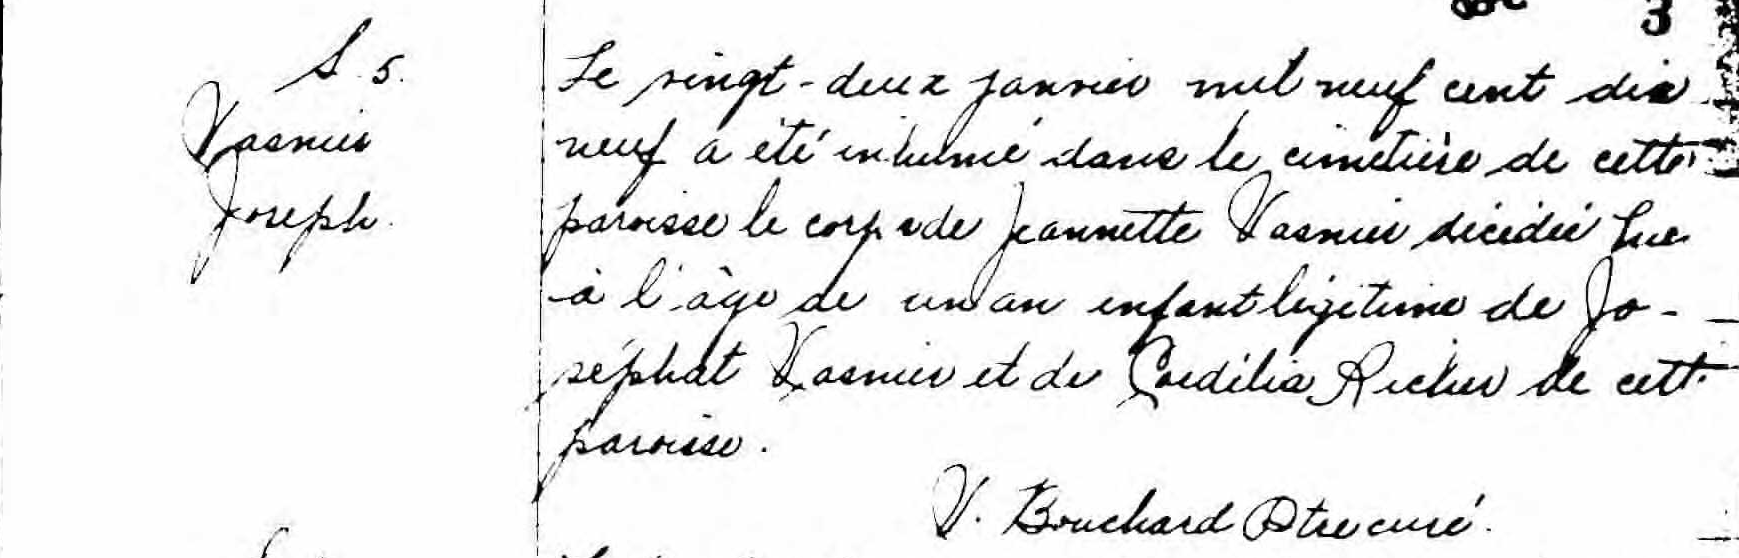 3
S. 5.
Vasnier
Joseph.
Le vingt-deux janvier mil neuf cent dix
neuf a été inhumé dans le cimetière de cette
paroisse le corps de Jeannette Vasnier décédée hier
à l'âge de un an enfant légitime de Jo-
séphat Vasnier et de Cordélia Richer de cette
paroisse.
V. Bouchard Ptre curé.